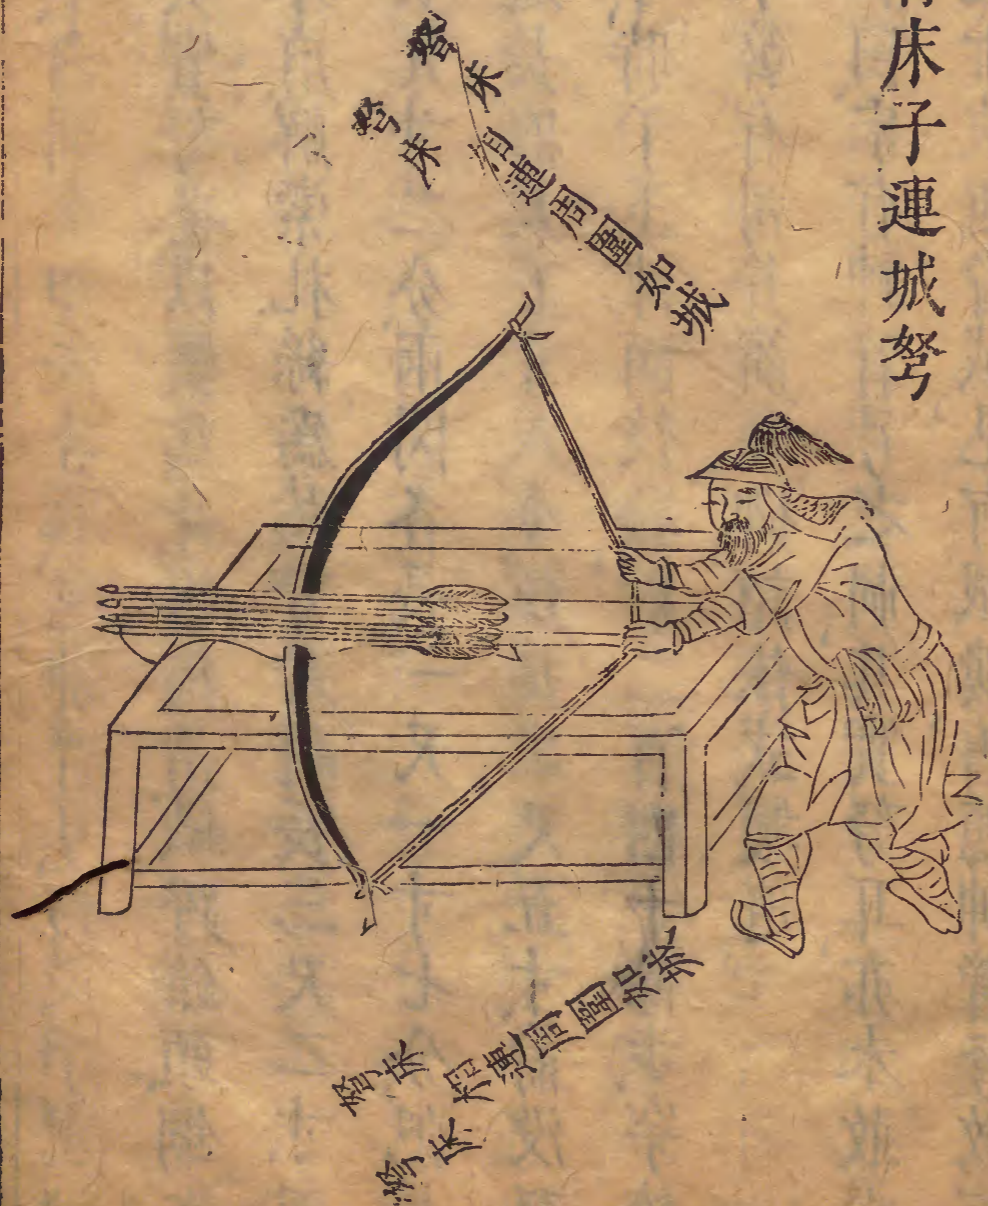 床子連城弩
弩床
弩床
相連周圍如城
弩床
弩床
相連周圍如城